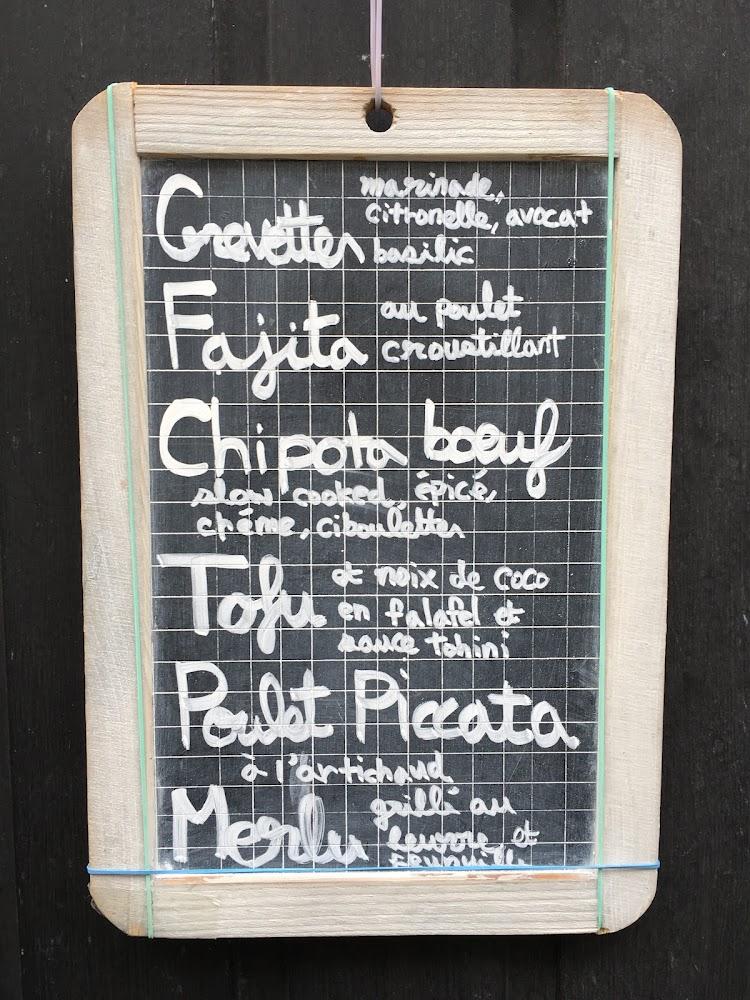 Crevettes marinade,
citronelle, avocat
basilic
Fajita au poulet
croustillant
Chipota boeuf
slow cooked, épicé,
crème, ciboulettes
Tofu et noix de coco
en falafel et
sauce tahini
Poulet Piccata
à l'artichaud
Merlu grillé au
beurre, et